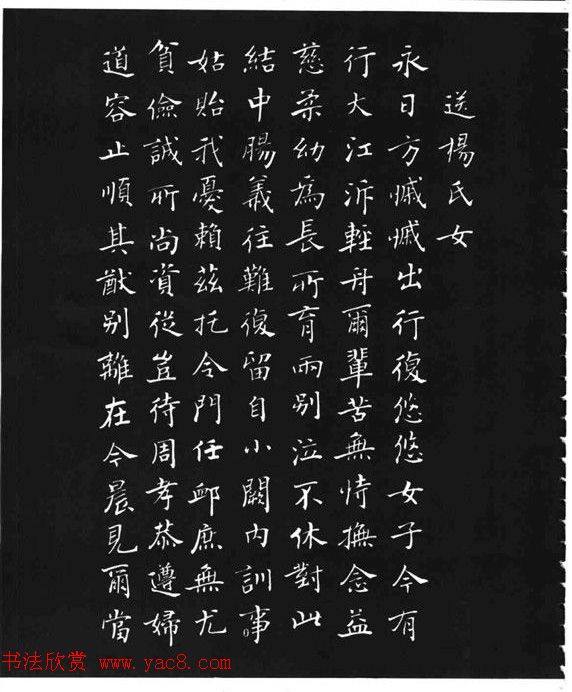 送楊氏女
永日方慽慽出行復悠悠女子今有
行大江泝輕舟爾輩苦無恃撫念益
慈柔幼爲長所育兩别泣不休對此
結中腸義往難復留自小闕内訓事
姑貽我憂賴兹托令門任卹庶無尤
貧儉誠所尚資從豈待周孝恭遵婦
道容止順其猷别離在今晨見爾當
书法欣赏 www.yac8.com